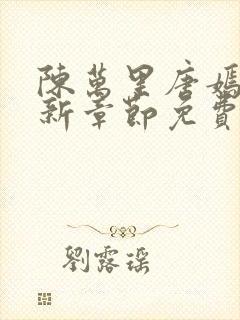 陳萬里唐嫣
新章節免費
劉露瑶